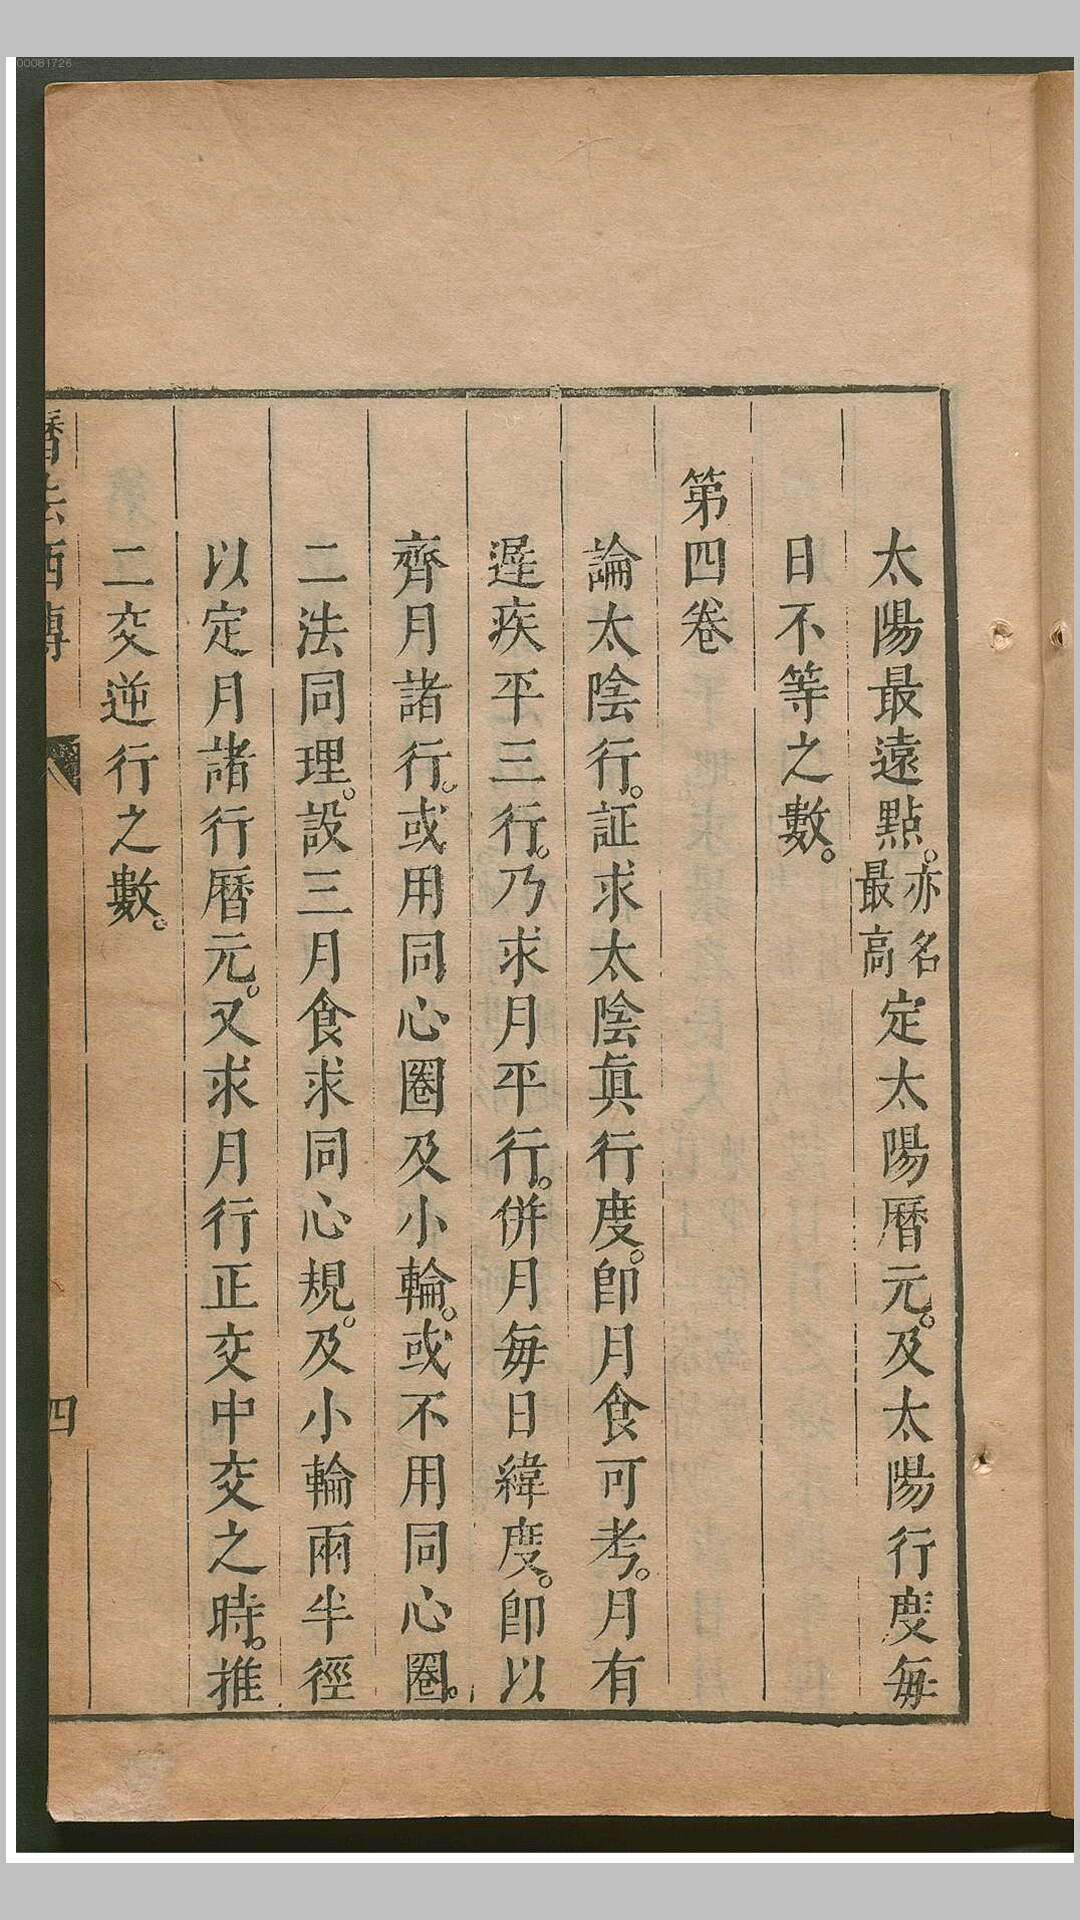 太陽最遠點。亦名最高定太陽曆元。及太陽行度每
日不等之數。
第四卷
論太陰行。証求太陰眞行度。卽月食可考。月有
遲疾平三行。乃求月平行。併月每日緯度。卽以
齊月諸行。或用同心圈及小輪。或不用同心圈。
二法同理。設三月食求同心規。及小輪兩半徑
以定月諸行曆元。又求月行正交中交之時。推
二交逆行之數。
曆法西傳
四
00081726